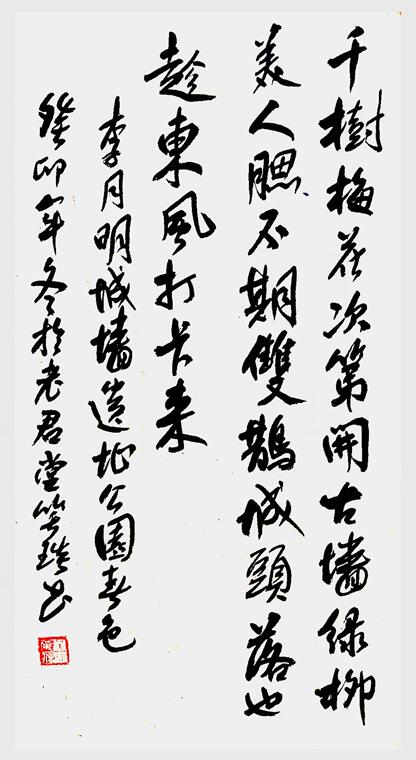 千樹梅花次第開古墻綠柳
美人腮不期雙鵲城頭落也
趁東風打卡来
李月明城墻遺址公園春色
癸卯年冬於老君堂书